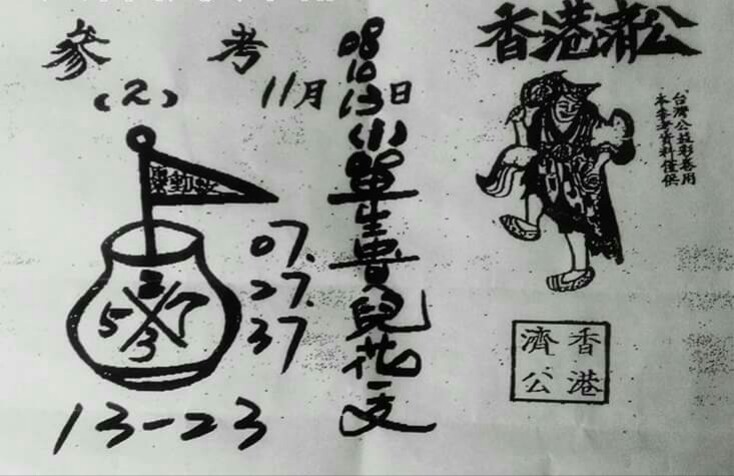 香港濟公
參 考
(2) 11月 日
08
10
13
(小)單生貴兒花一支
2
5 7
3
07.
27.
37
13-23
本參考資料僅供
台灣公益彩卷用
香港
濟公